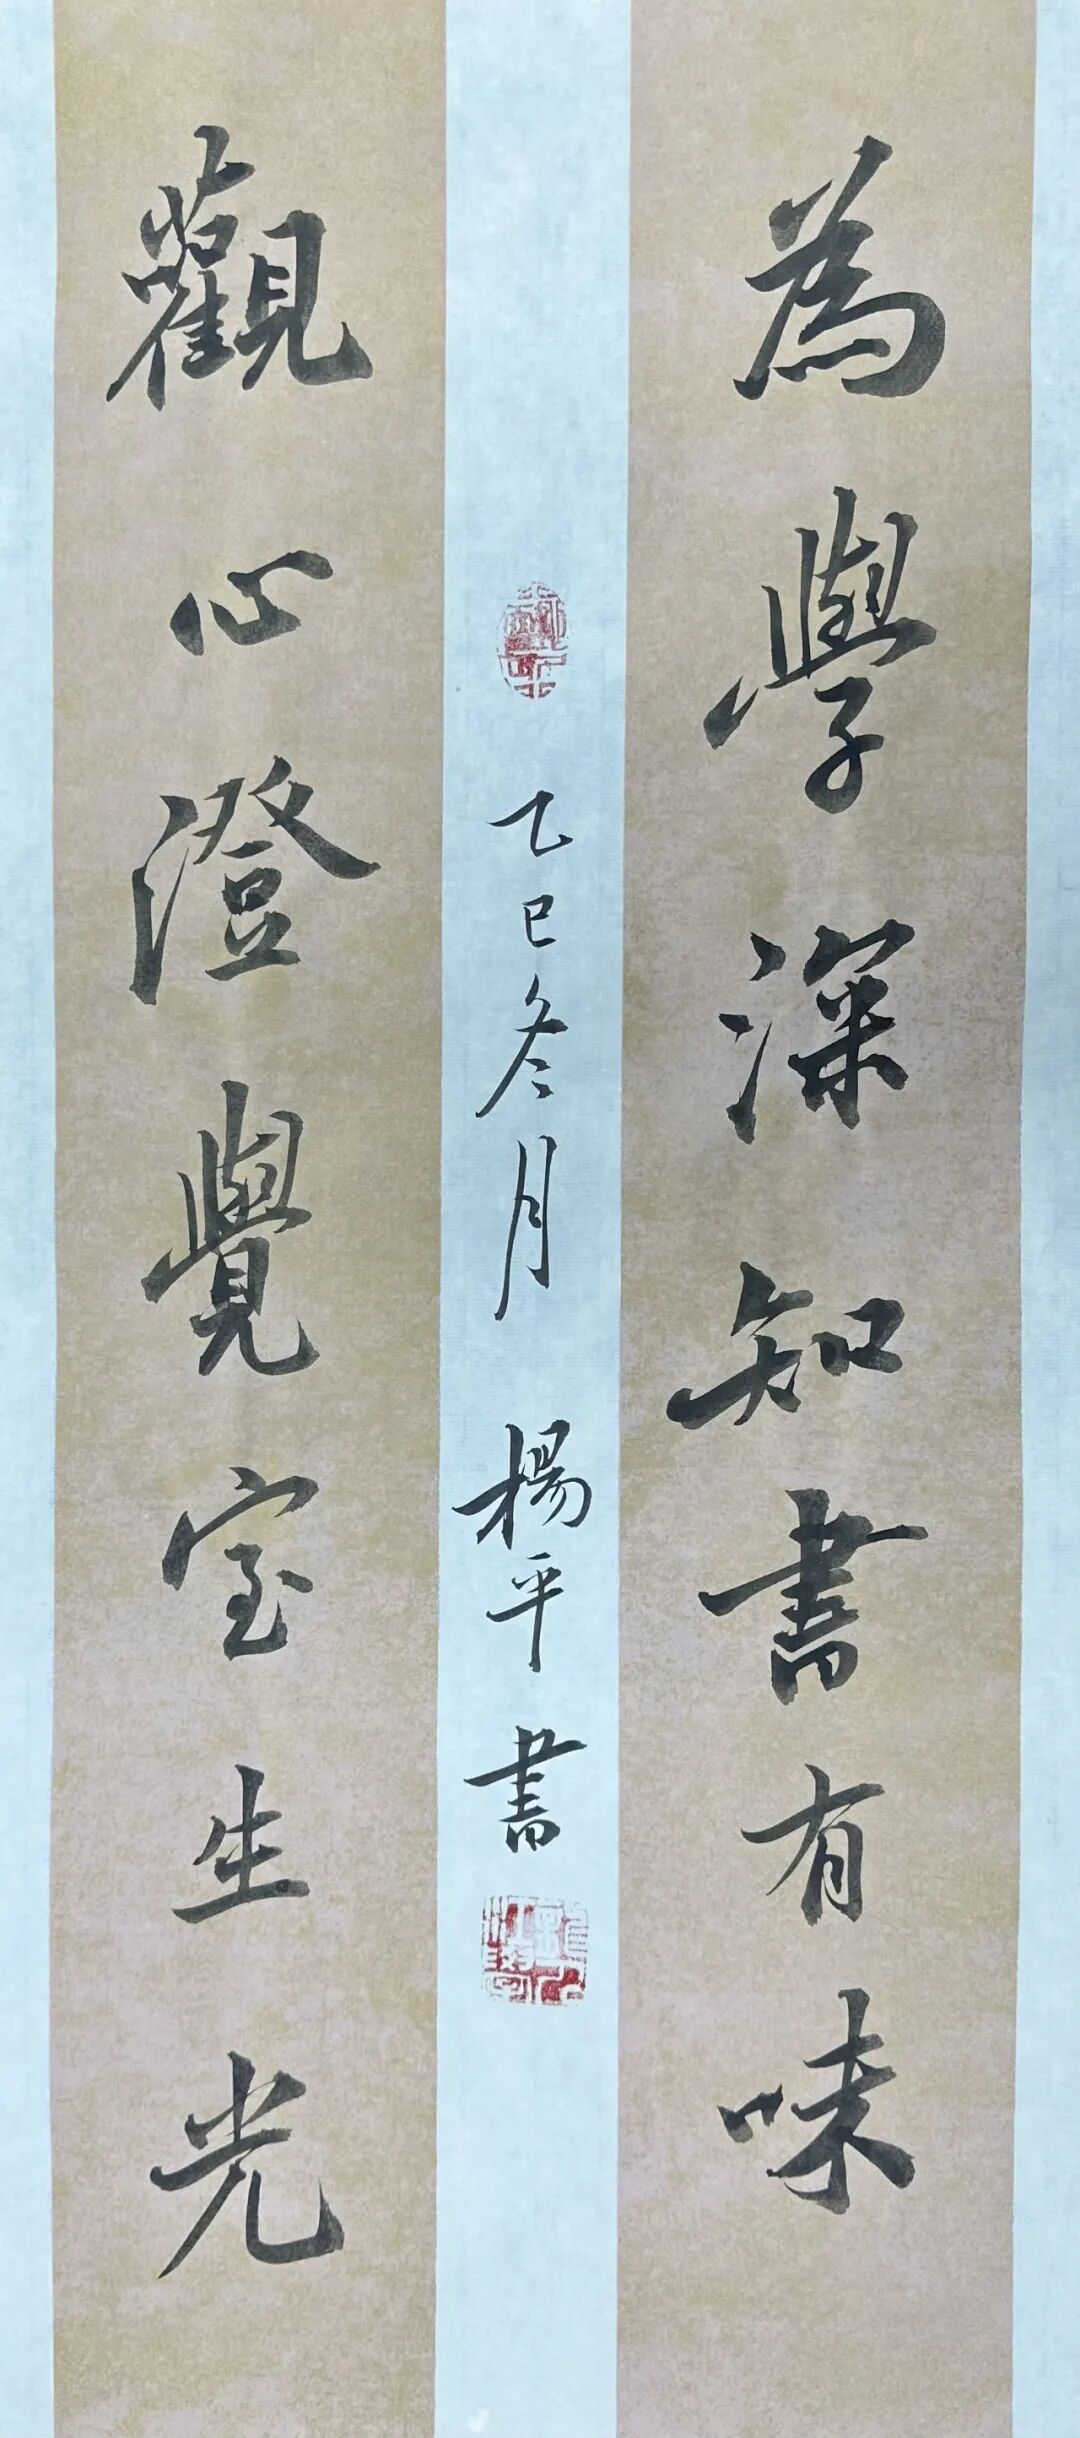 為學深知書有味
觀心澄覺室生光
乙巳冬月 楊平書